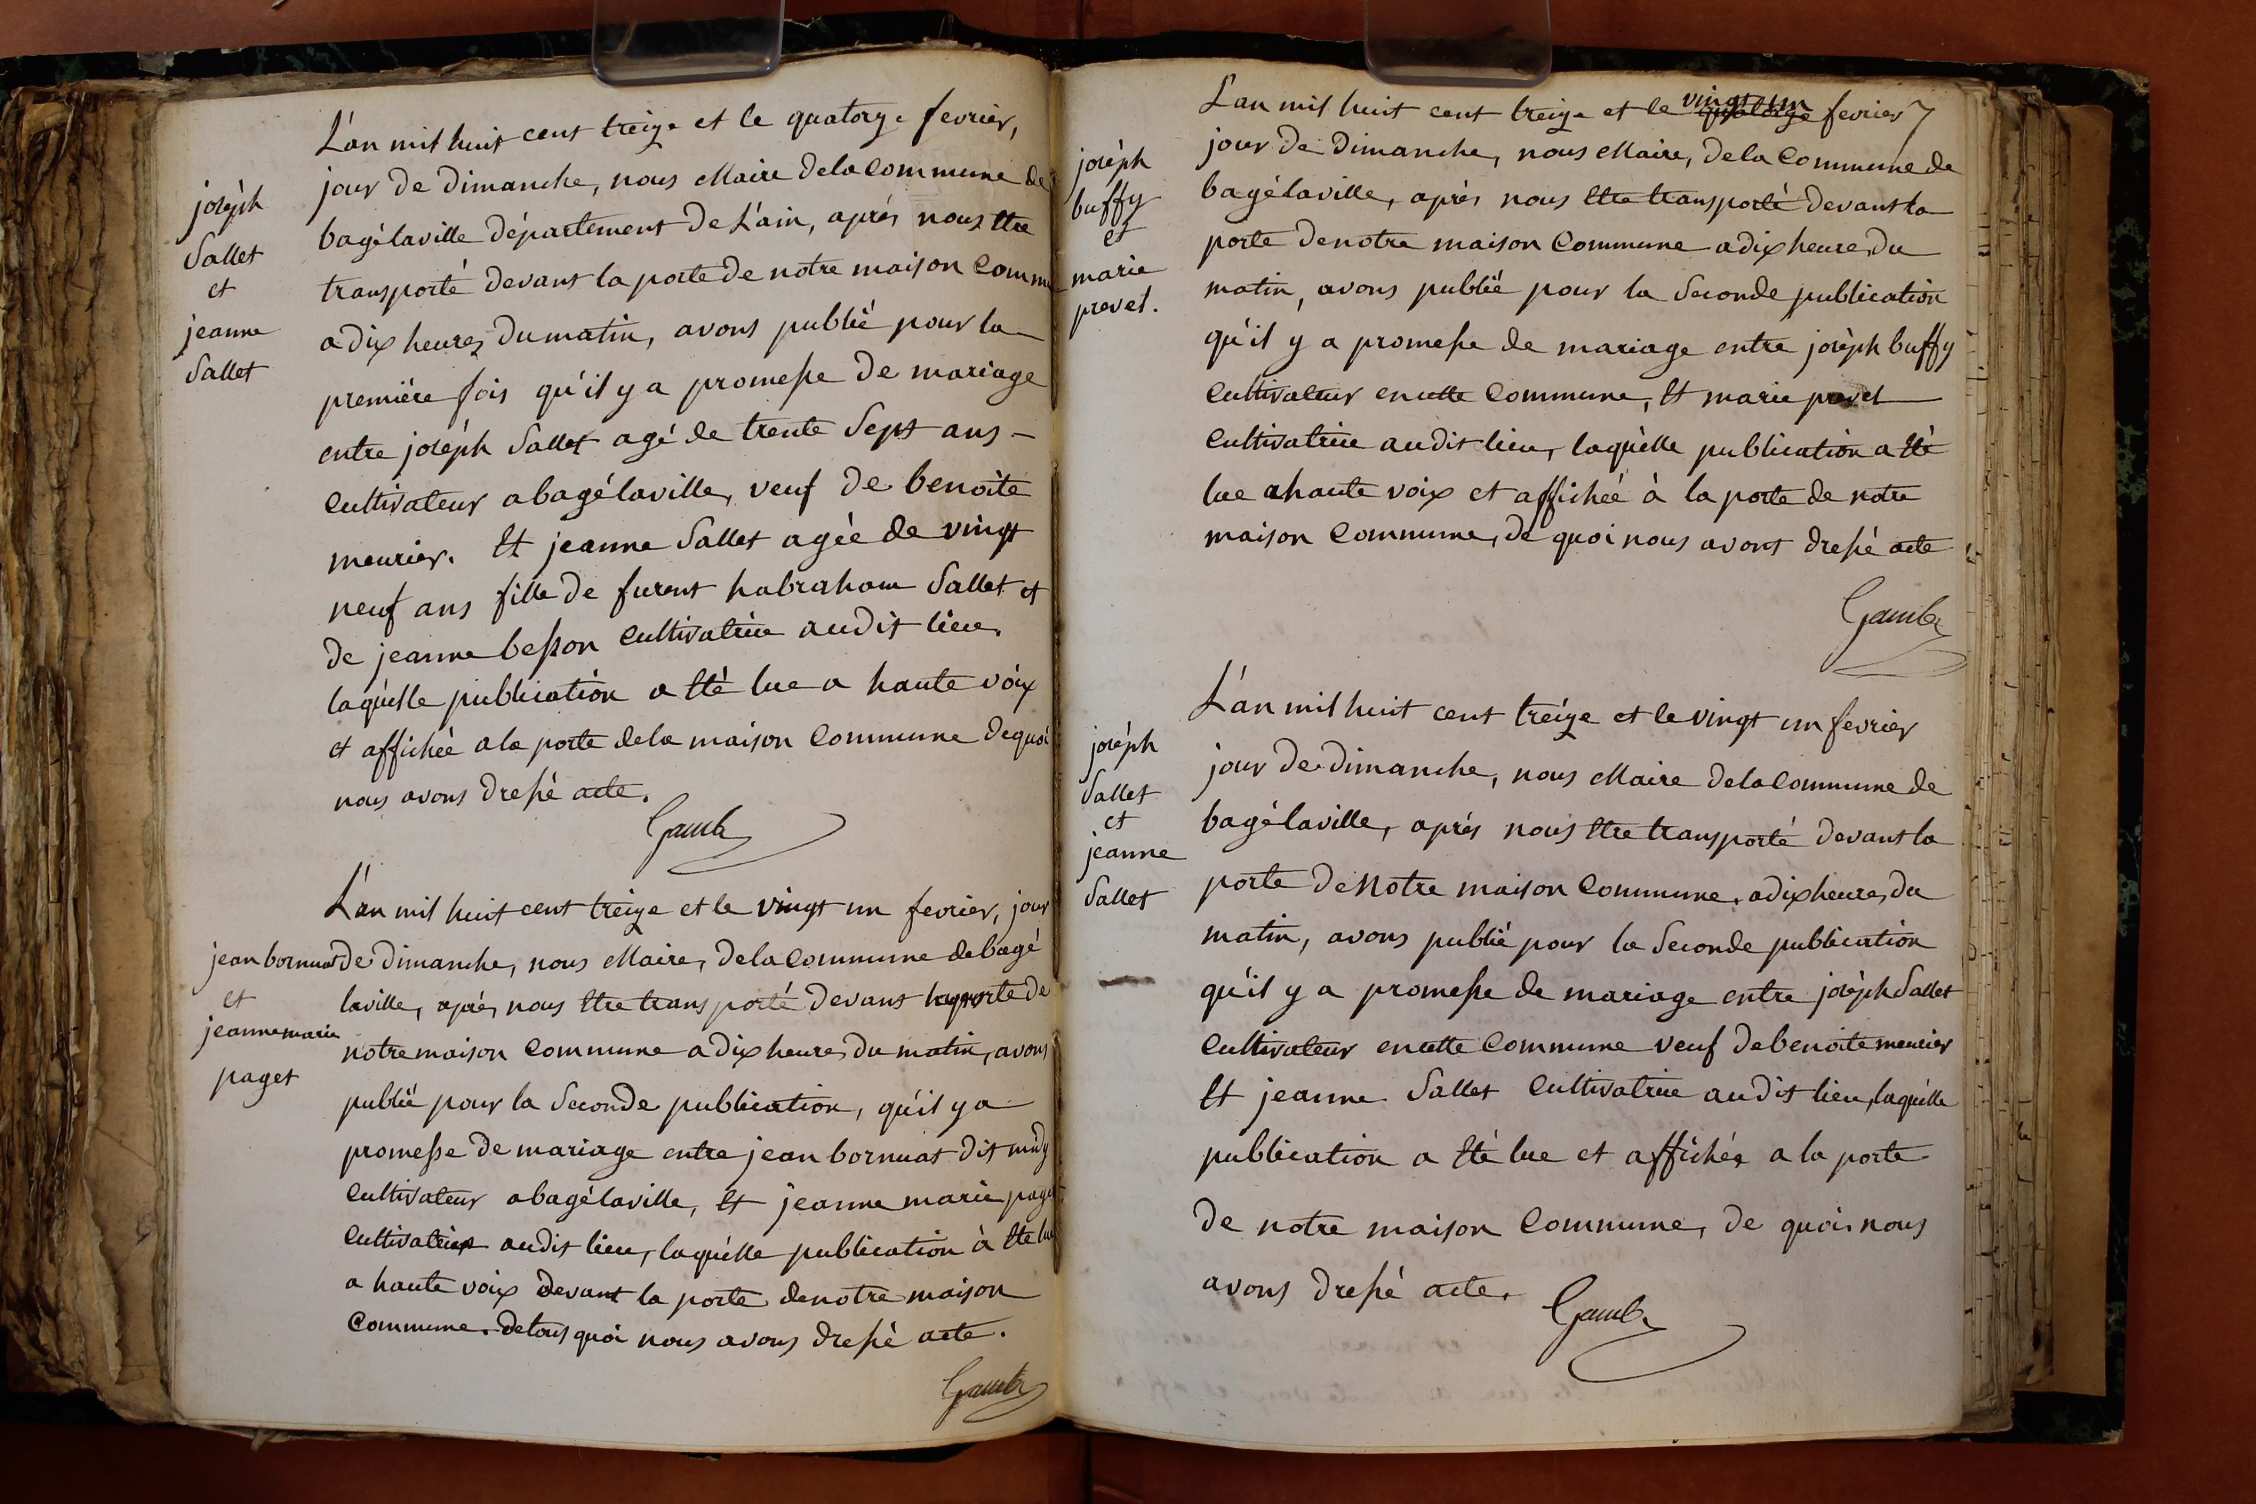 joséph
Sallet
et
jeanne
Sallet
L'an mil huit cent treize et le quatorze fevrier,
jour de dimanche, nous Maire dela commune de
bagélaville département de L'ain, aprés nous Etre
transporté devant la porte de notre maison Commu
a dix heures du matin, avons publié pour la
premiére fois qu'il y a promesse de mariage
entre joséph Sallet agé de trente Sept ans —
Cultivateur a bagélaville, veuf de benoite
meurier. Et jeanne Sallet agée de vingt
neuf ans fille de furent habraham Sallet et
de jeanne besson Cultivatrice audit lieu,
laquélle publication a Eté lue a haute voix
et affichée a la porte dela maison Commune dequoi
nous avons dressé acte.
Gamb
jean bornuat
et
jeanne marie
paget
L'an mil huit cent treize et le vingt un fevrier, jour
de dimanche, nous Maire, dela Commune de bagé
laville, aprés nous Etre transporté devant la porte de
notre maison Commune a dix heures du matin, avons
publié pour la Seconde publication, qu'il y a
promesse de mariage entre jean bornuat dit midy
Cultivateur a bagélaville, Et jeanne marie paget
Cultivatrice audit lieu, laquélle publication à Eté lue
a haute voix devant la porte denotre maison
Commune. detous quoi nous avons dressé acte.
Gamb
joséph
buffy
et
marie
prevel.
L'an mil huit cent treize et le quatorze vingt un fevrier
jour de dimanche, nous Maire, dela Commune de
bagélaville, aprés nous Etre transporté devant la
porte denotre maison Commune a dix heures du
matin, avons publié pour la Seconde publication
qu'il y a promesse de mariage entre joséph buffy
Cultivateur encette Commune, Et marie prevel
Cultivatrice audit lieu, laquélle publication a Eté
lue a haute voix et affichée à la porte de notre
maison Commune, de quoi nous avons dressé acte
Gamb
joséph
Sallet
et
jeanne
Sallet
L'an mil huit cent treize et le vingt un fevrier
jour de dimanche, nous Maire dela Commune de
bagélaville, aprés nous Etre transporté devant la
porte de Notre maison Commune, a dix heures du
matin, avons publié pour la Seconde publication
qu'il y a promesse de mariage entre joséph Sallet
Cultivateur encette Commune veuf de benoite meurier
Et jeanne Sallet Cultivatrice audit lieu, laquélle
publication a Eté lue et affichée a la porte
de notre maison Commune, de quoi nous
avons dressé acte.
Gamb